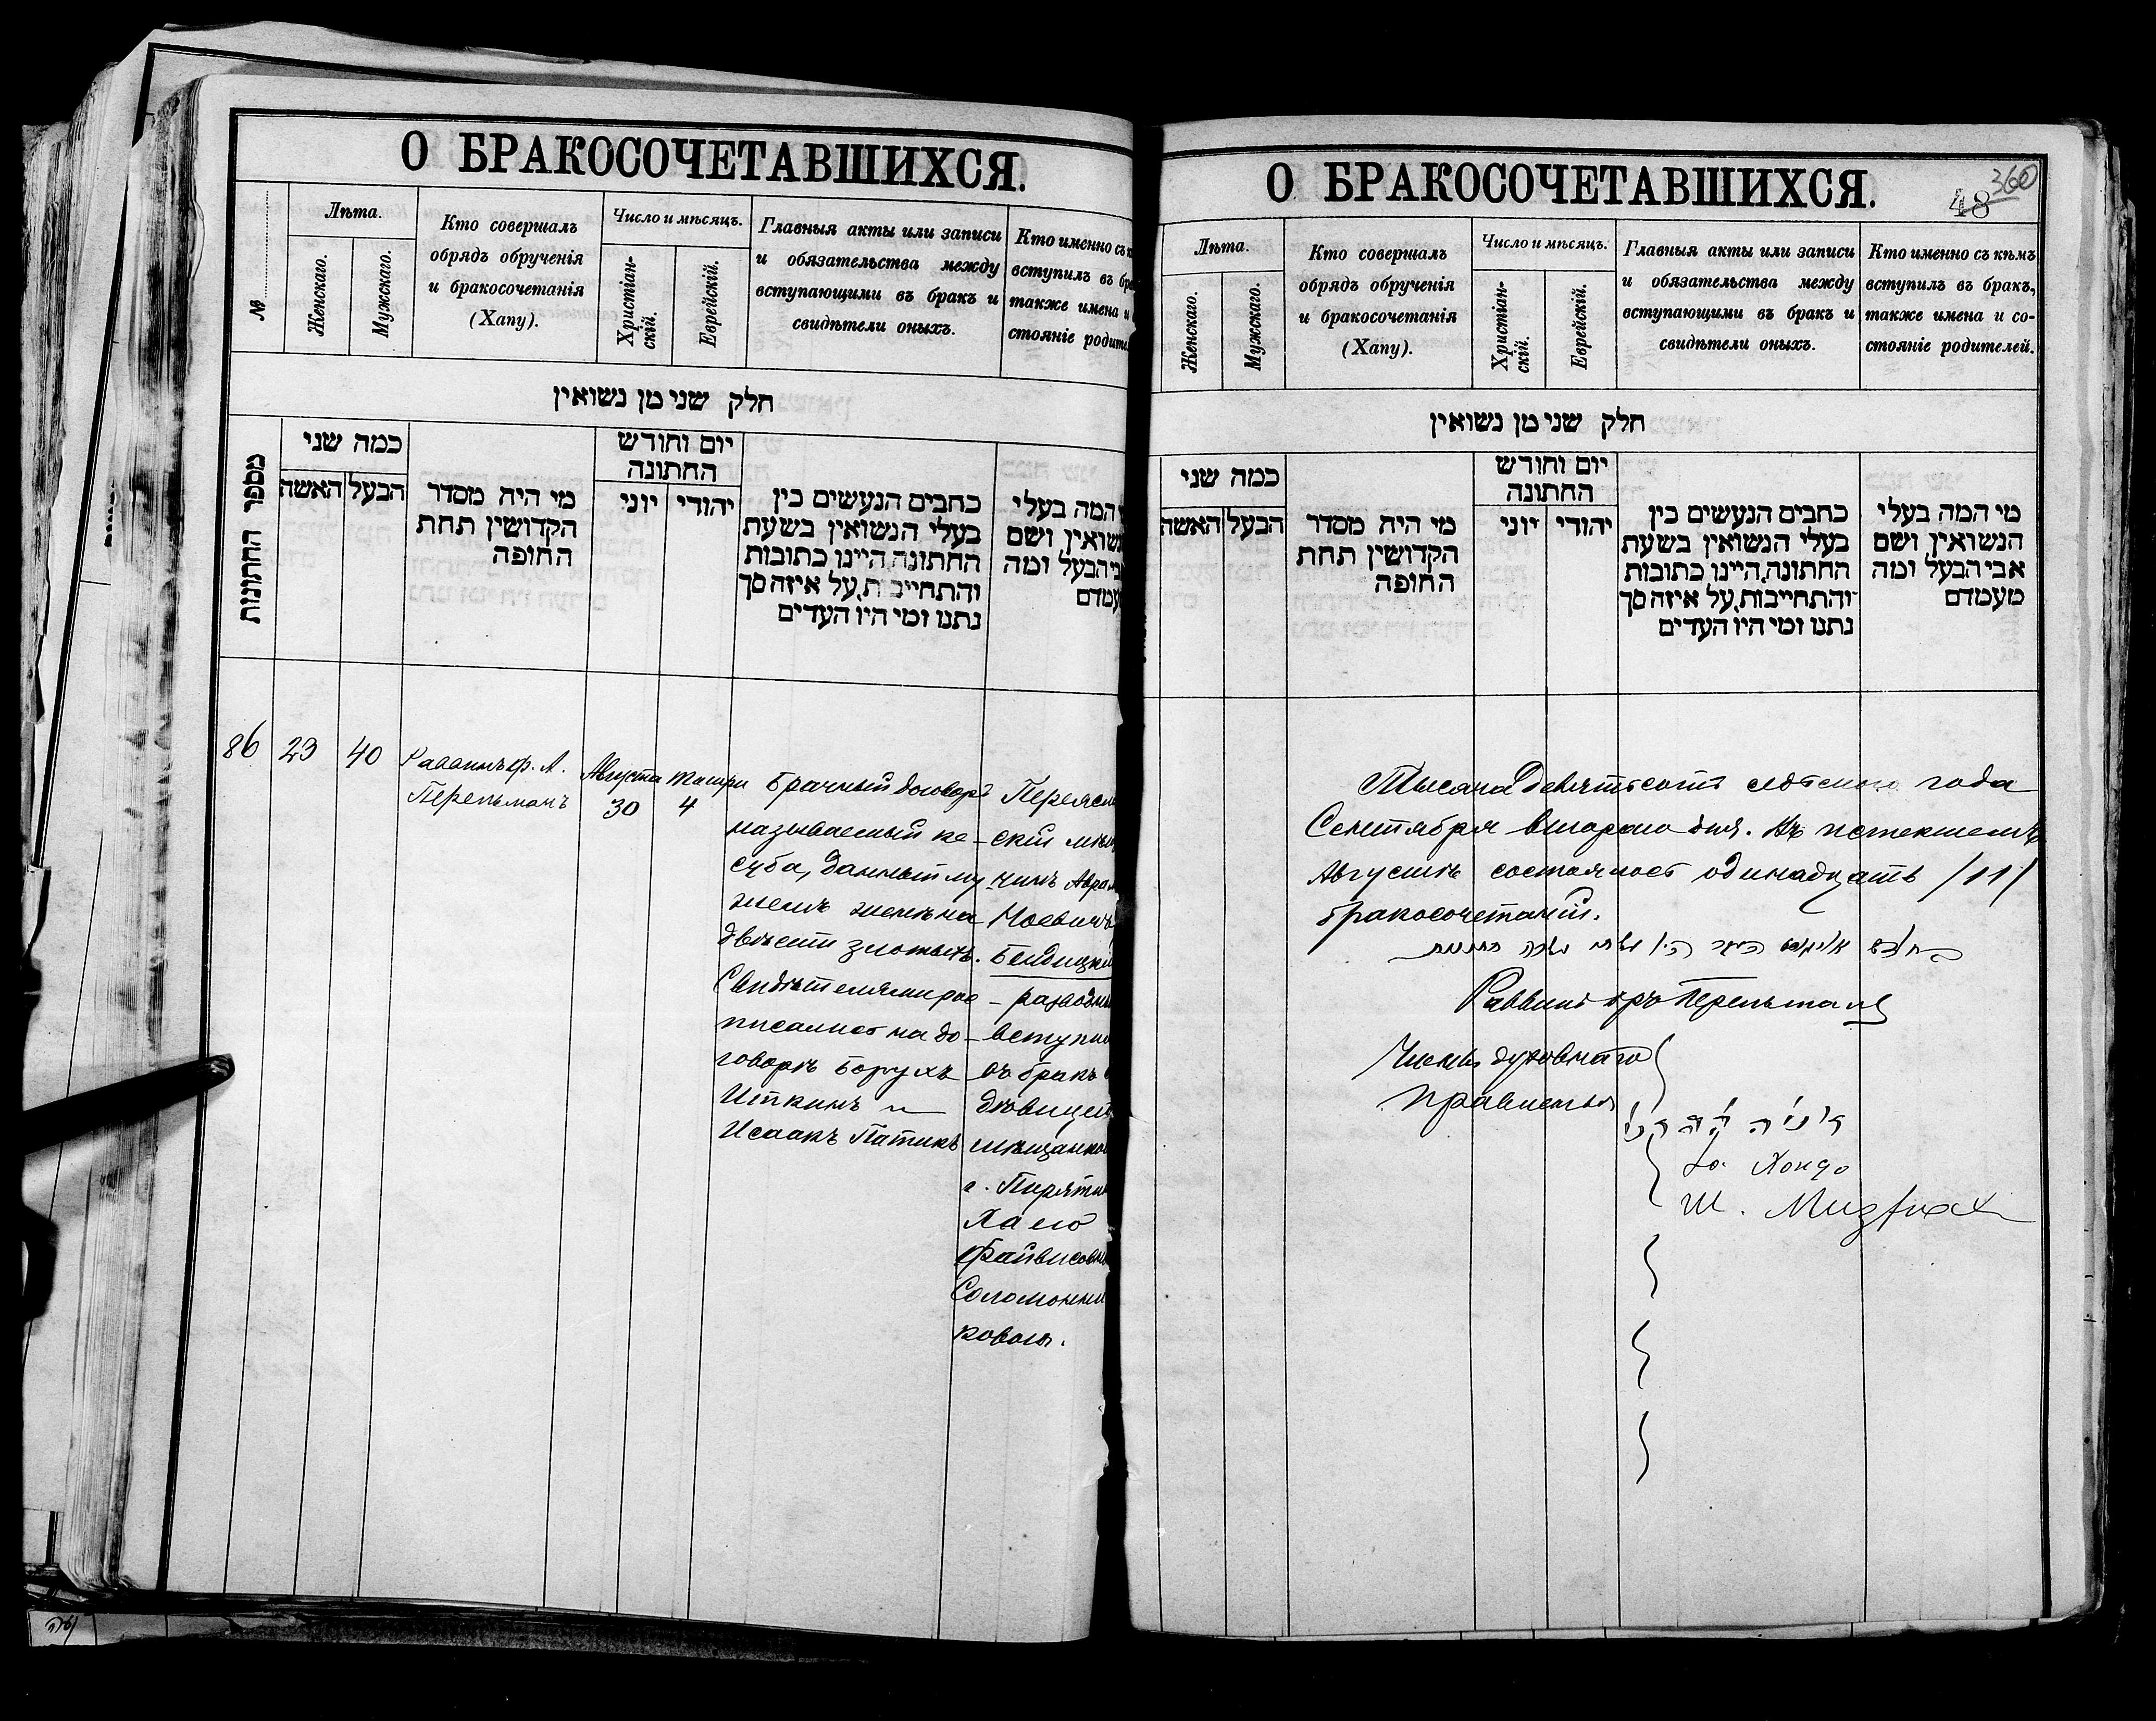 О БРАКОСОЧЕТАВШИХСЯ.
№
Лѣта.
Женскаго.
Мужскаго.
Кто совершалъ
обрядъ обрученія
и бракосочетанія
(Хапу).
Число и мѣсяцъ.
Христіан-
скій.
Еврейскій.
Главныя акты или записи
и обязательства между
вступающими въ бракъ и
свидѣтели оныхъ.
Кто именно съ
вступилъ въ
также имена и
стояніе
חלק שני מן נשואין
מספר החתונות
כמה שני
האשה
הבעל
מי היה מסדר
הקדושין תחת
החופה
יום וחודש
החתונה
יוני
יהודי
כתבים הנעשים בין
בעלי הנשואין בשעת
החתונה, היינו כתובות
והתחייבות, על איזה סך
נתנו ומי היו העדים
המה בעלי
ושם
ומה
86
23
40
Раввинъ ф. А.
Перельманъ
Августа
30
Тишри
4
Брачный договоръ
называемый ке-
суба, данный му
жемъ женѣ на
двѣсти злотыхъ.
Свидѣтелями рос
писались на до-
говорѣ Борухъ
Иткинъ и
Исаакъ Патикъ
скій
чинъ
въ бракъ
г.
Хаею
ковою.
О БРАКОСОЧЕТАВШИХСЯ.
48
360
Лѣта.
Женскаго.
Мужскаго.
Кто совершалъ
обрядъ обрученія
и бракосочетанія
(Хапу).
Число и мѣсяцъ.
Христіан-
скій.
Еврейскій.
Главныя акты или записи
и обязательства между
вступающими въ бракъ и
свидѣтели оныхъ.
Кто именно съ кѣмъ
вступилъ въ бракъ,
также имена и со-
стояніе родителей.
חלק שני מן נשואין
כמה שני
האשה
הבעל
מי היה מסדר
הקדושין תחת
החופה
יום וחודש
החתונה
יוני
יהודי
כתבים הנעשים בין
בעלי הנשואין בשעת
החתונה, היינו כתובות
והתחייבות, על איזה סך
נתנו ומי היו העדים
מי המה בעלי
הנשואין ושם
אבי הבעל ומה
מעמדם
Тысяча девятьсотъ года
Сентября второго дня. Въ истекшемъ
Августѣ состоялось одинадцать /11/
бракосочетаній.
Раввинъ Перельманъ
Члены духовнаго
Правленія
Ш. Мизрах